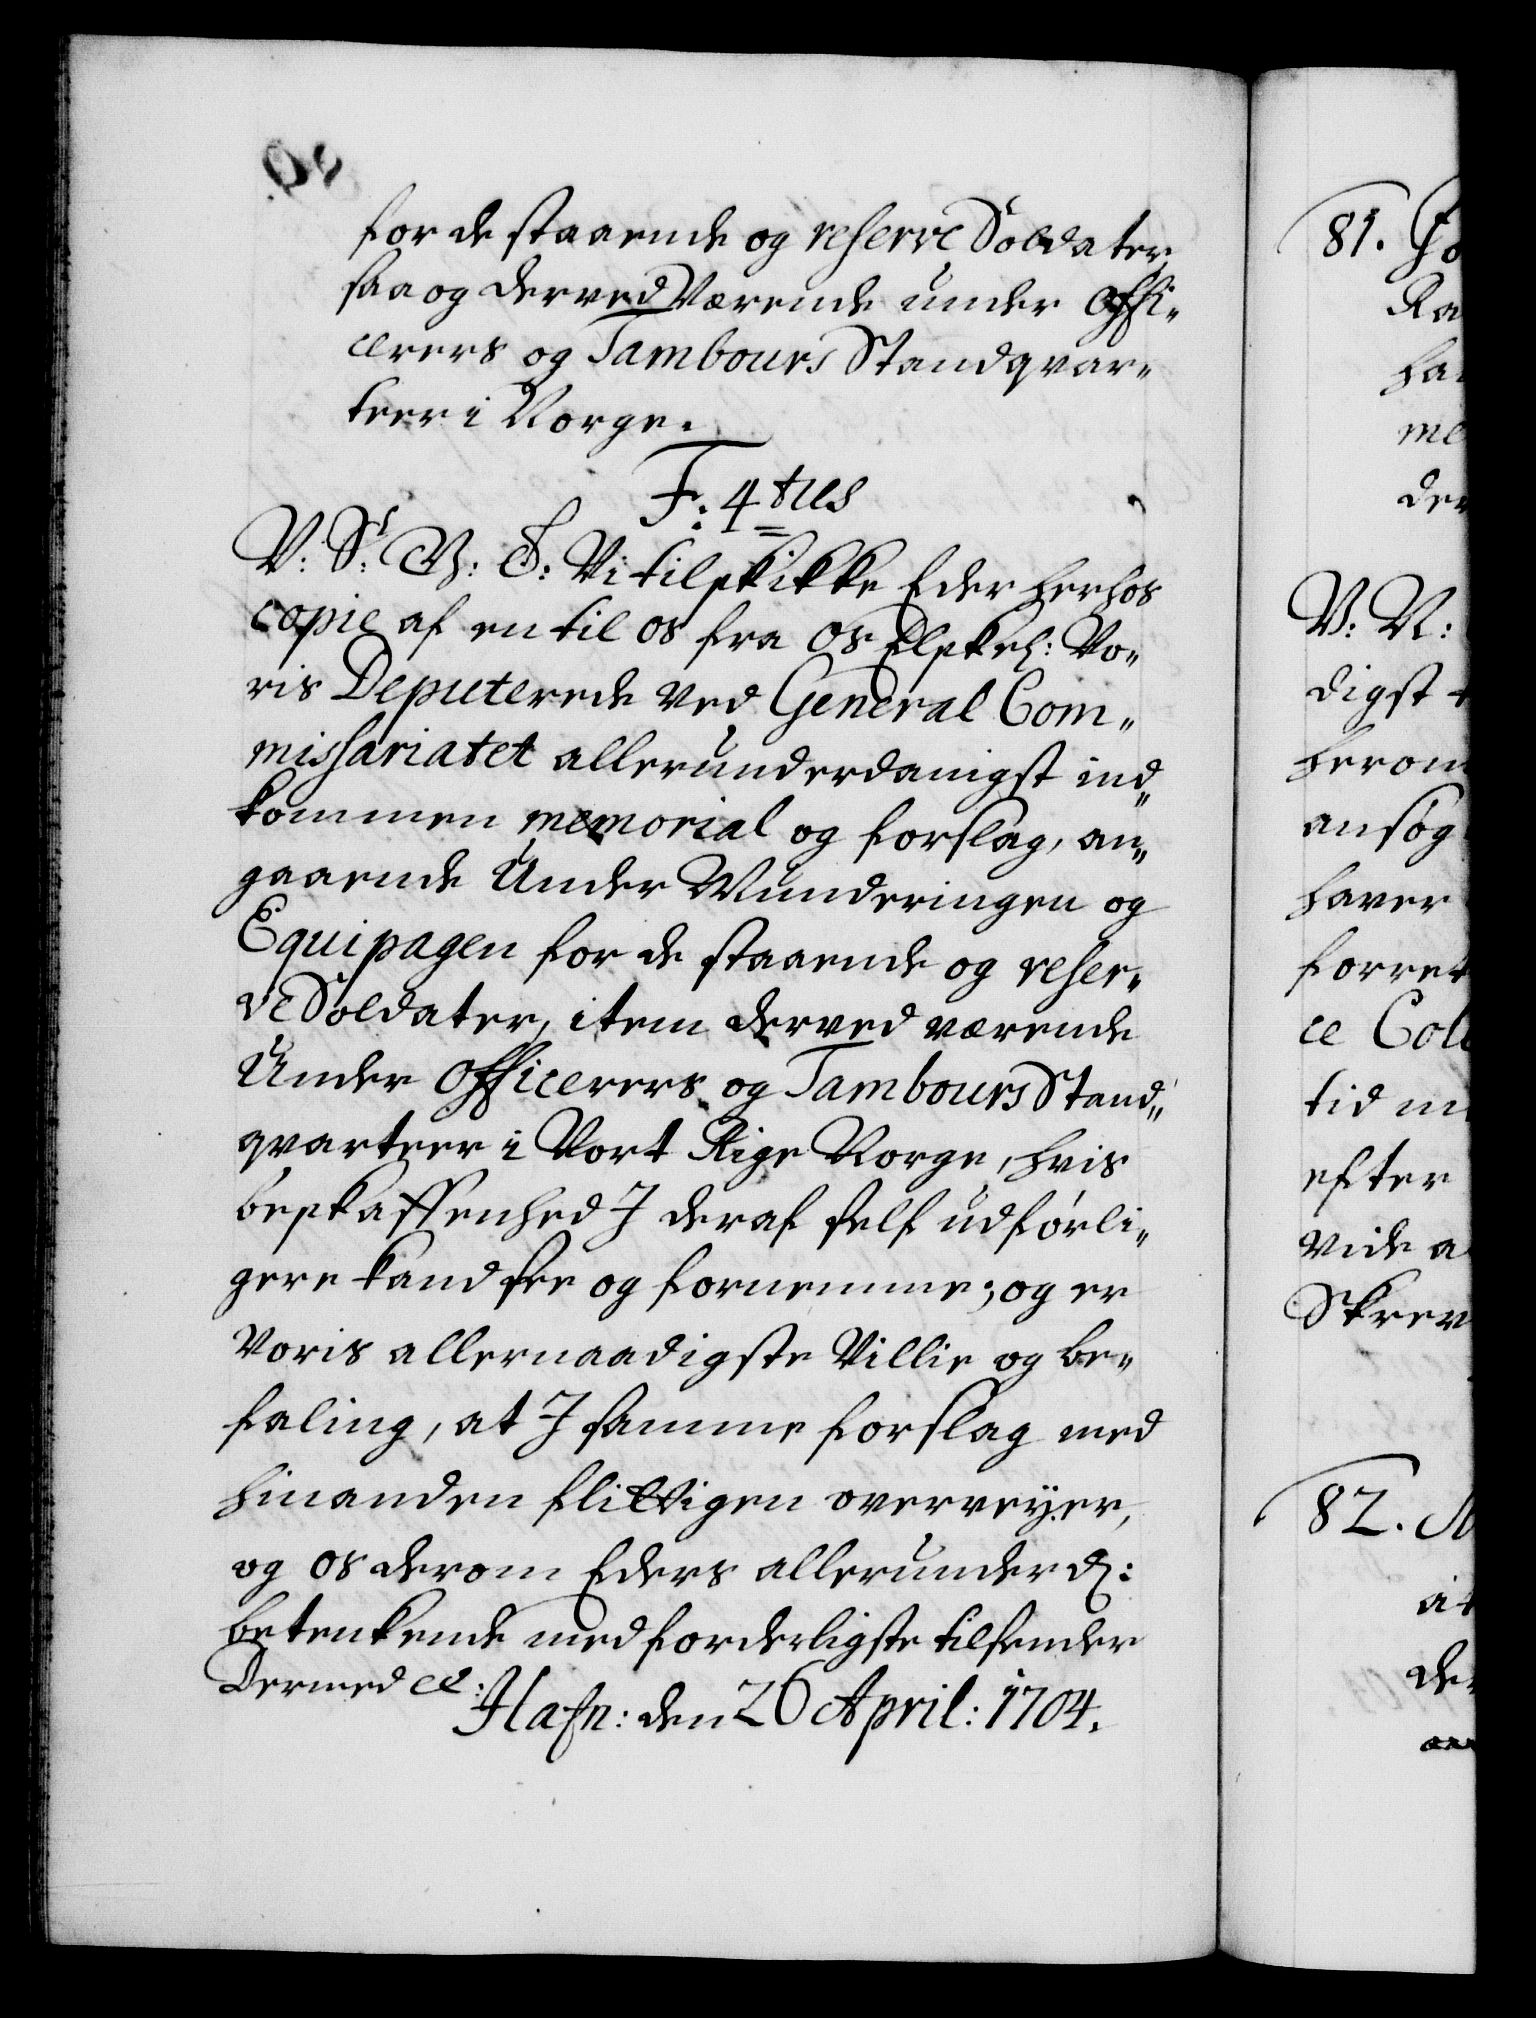 for de staaende og reserve Soldater
saa og derved Værende under Offi-
cerers og Tambours Standqvar-
teer i Norge.
F: 4tus
V: S: V: G: Vi tilskikke Eder herhos
copie af en til os fra Os Elskel: Vo-
ris Deputerede ved General Com-
missariatet allerunderdanigst ind-
kommen memorial og forslag, an-
gaaende Under Munderingen og
Equipagen for de staaende og reser-
ve Soldater, item derved værende
Under Officerers og Tambours Stand-
qvarteer i Vort Rige Norge, hvis
beskaffenhed I deraf self udførli-
gere kand see og fornemme; og er
Voris allernaadigste Villie og be-
faling, at I samme forslag med
hinanden flittigen overveyer,
og os derom Eders allerunderd:
betenkende med forderligste tilsender
Dermed etc:
Hafn: den 26 April: 1704.
81.
V: N:
digst
herom
ansøg
haver
forret
ce
tid
efter
vide a
Skrev
82.